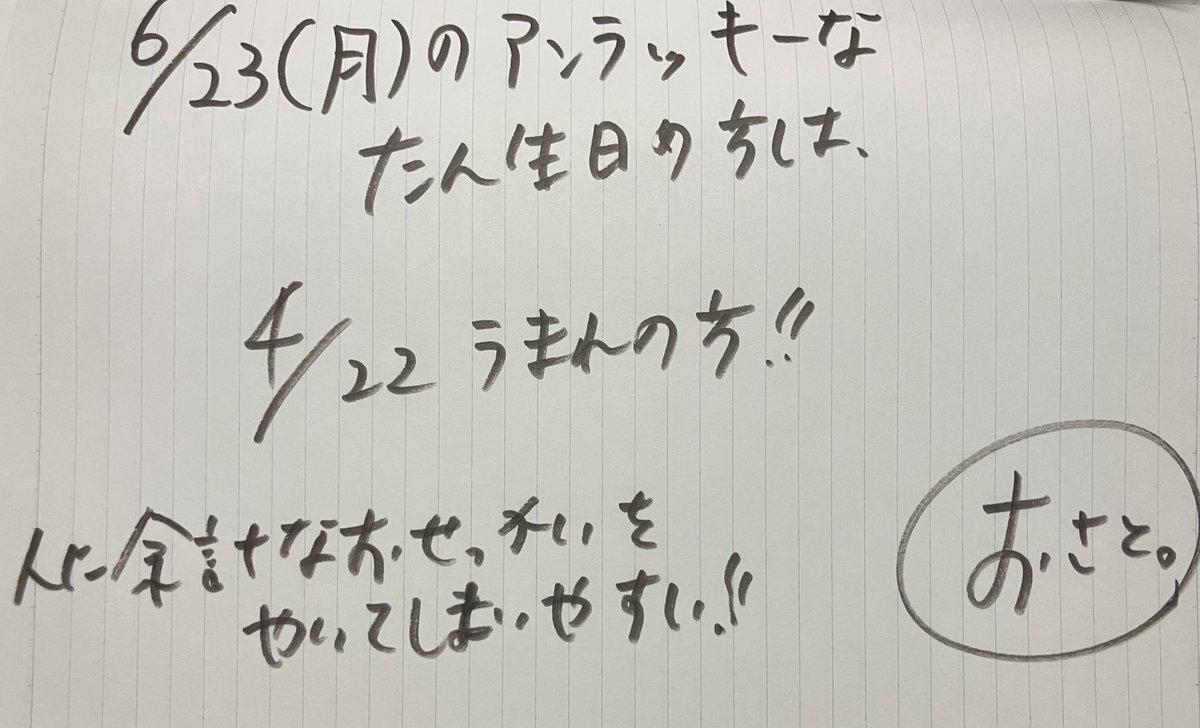 6/23(月)のアンラッキーな
たん生日の方は、
4/22うまれの方!!
人に余計なおせっかいを
やいてしまいやすい!!
おさと。